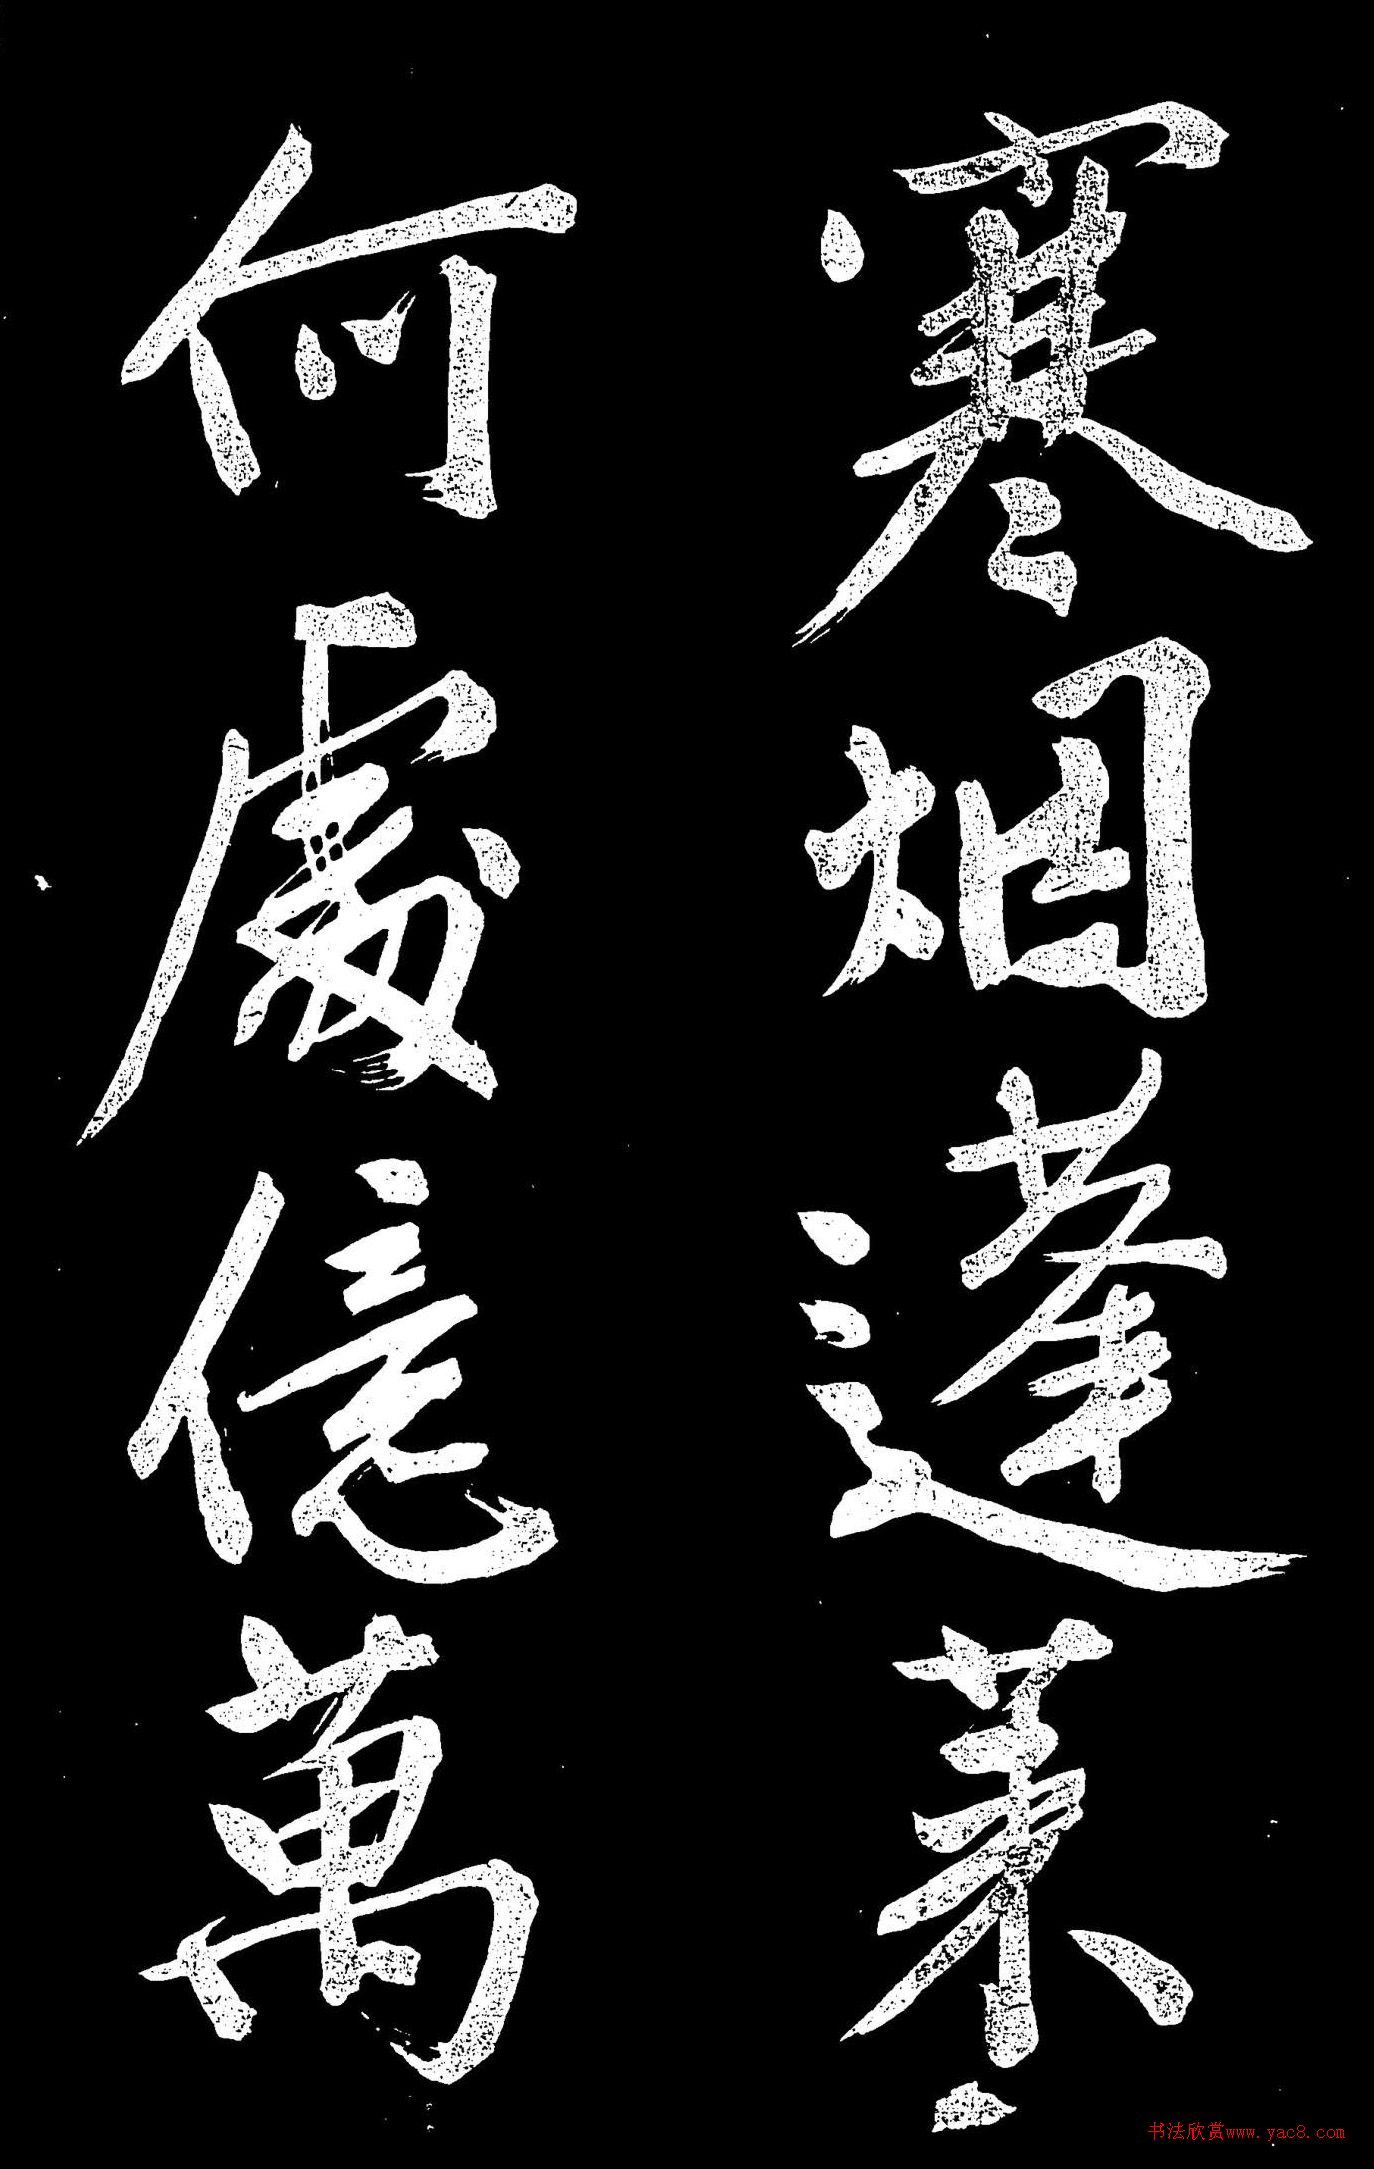 寒烟蓬萊
何處億萬
书法欣赏www.yac8.com